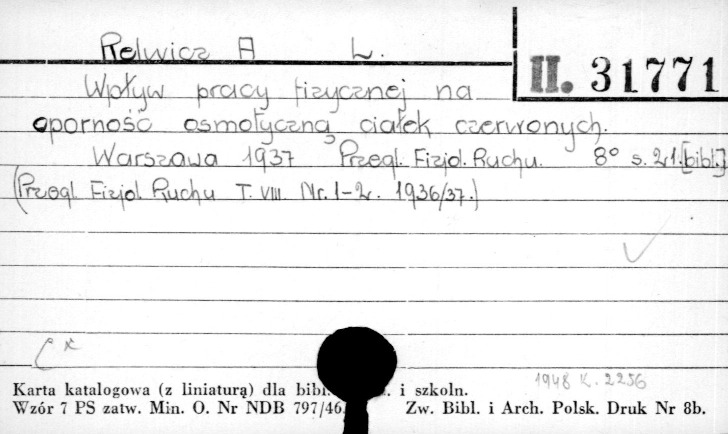 Relwicz A L.
II. 31771
Wpływ pracy fizycznej na
oporność osmotyczną ciałek czerwonych.
Warszawa 1937 Przegl. Fizjol. Ruchu. 8° s. 21. [bibl.]
(Przegl. Fizjol. Ruchu T. VIII. Nr. 1-2. 1936/37.)
1948 K. 2256
Karta katalogowa (z liniaturą) dla bibl. i szkoln.
Wzór 7 PS zatw. Min. O. Nr NDB 797/46. Zw. Bibl. i Arch. Polsk. Druk Nr 8b.